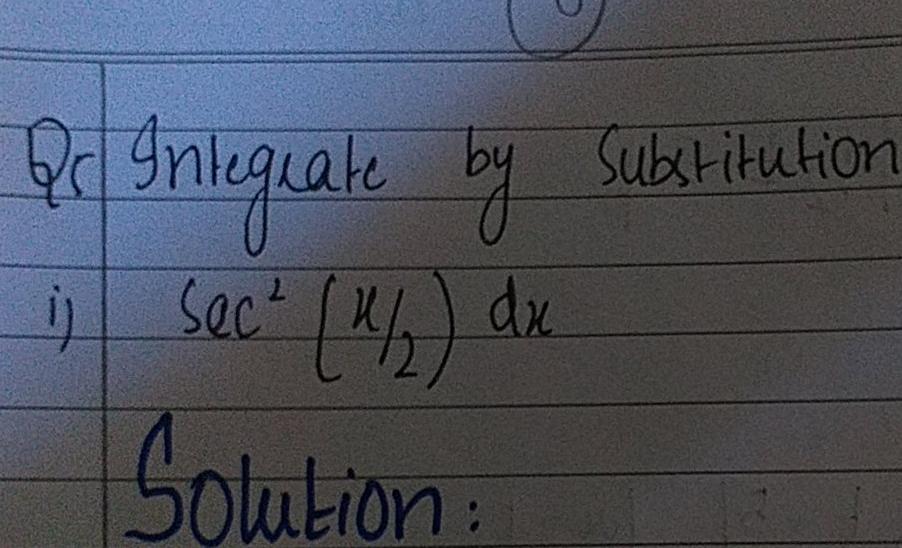 Qs Integrate by Substitution
i) Sec² (x/2) dx
Solution: